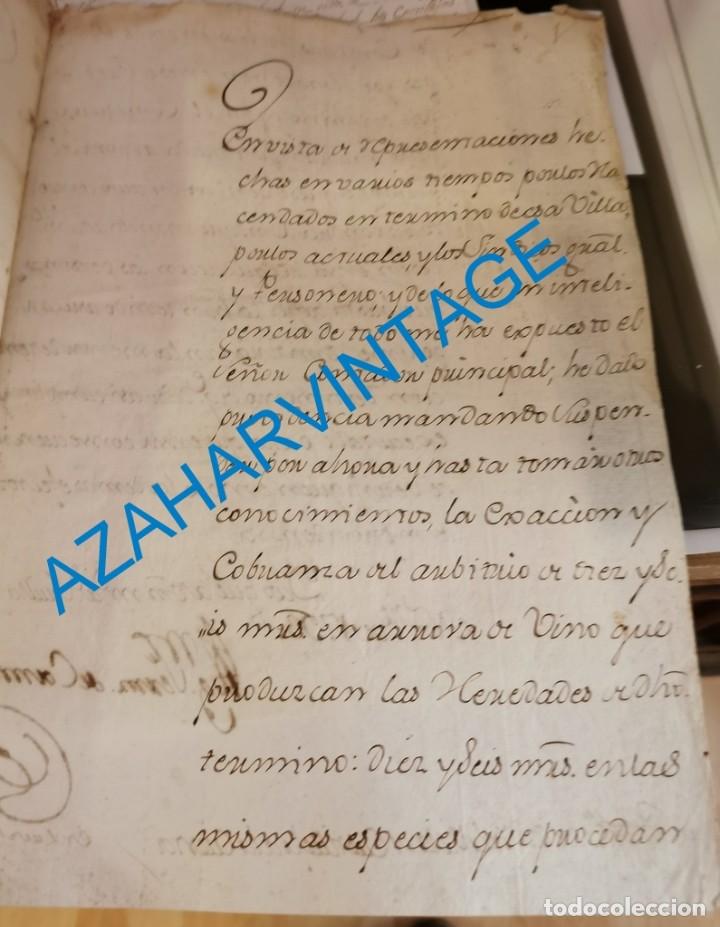 En vista de representaciones he-
chas en varios tiempos por los Ha-
cendados en termino de esa Villa,
por los actuales, y los Sindicos gral.
y Personero, y de lo que en inteli-
gencia de todo me ha expuesto el
Señor Contador principal; he dado
providencia mandando suspen-
der por ahora y hasta tomar otros
conocimientos, la Exaccion y
Cobranza del arbitrio de diez y se-
is mrs. en arrova de Vino que
produzcan las Heredades de dho.
termino: diez y seis mrs. en las
mismas especies que procedan
AZAHARVINTAGE
todocoleccion